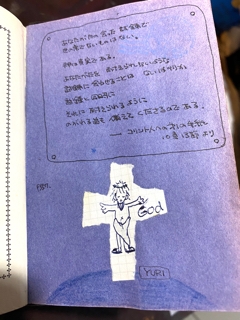 あなたがたの会った試練で
世の常でないものはない。
神は真実である。
あなたがたを耐えられないような
試練に会わせることは ないばかりか、
試練と同時に
それに 耐えられるように
のがれる道も 備えて くださるのである。
── コリント人への第一の手紙
10章13節 より
God
YURI